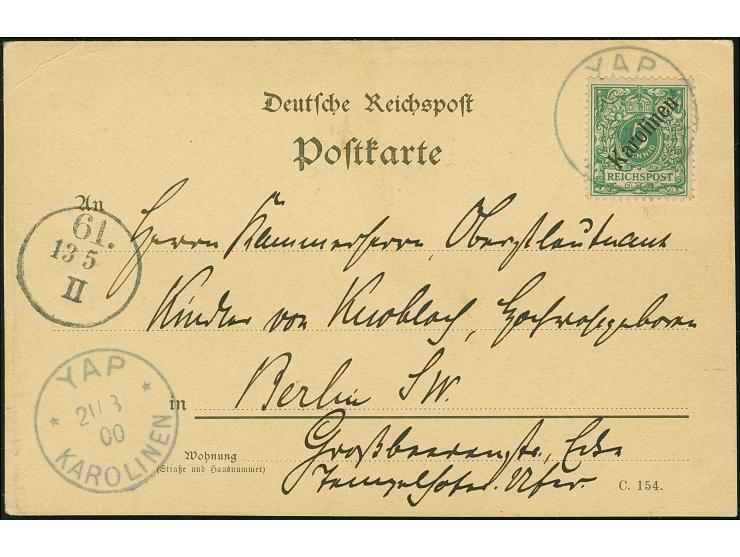 YAP
Karolinen
REICHSPOST
Deutsche Reichspost
Postkarte
An
61.
13 5
II
Herrn Kammerherrn, Oberstleutnant
Kindler von Knobloch, Hochwohlgeboren
in Berlin SW.
Wohnung
(Straße und Hausnummer)
Großbeerenstr. Ecke
Tempelhofer. Ufer.
YAP
21/3
00
KAROLINEN
C. 154.